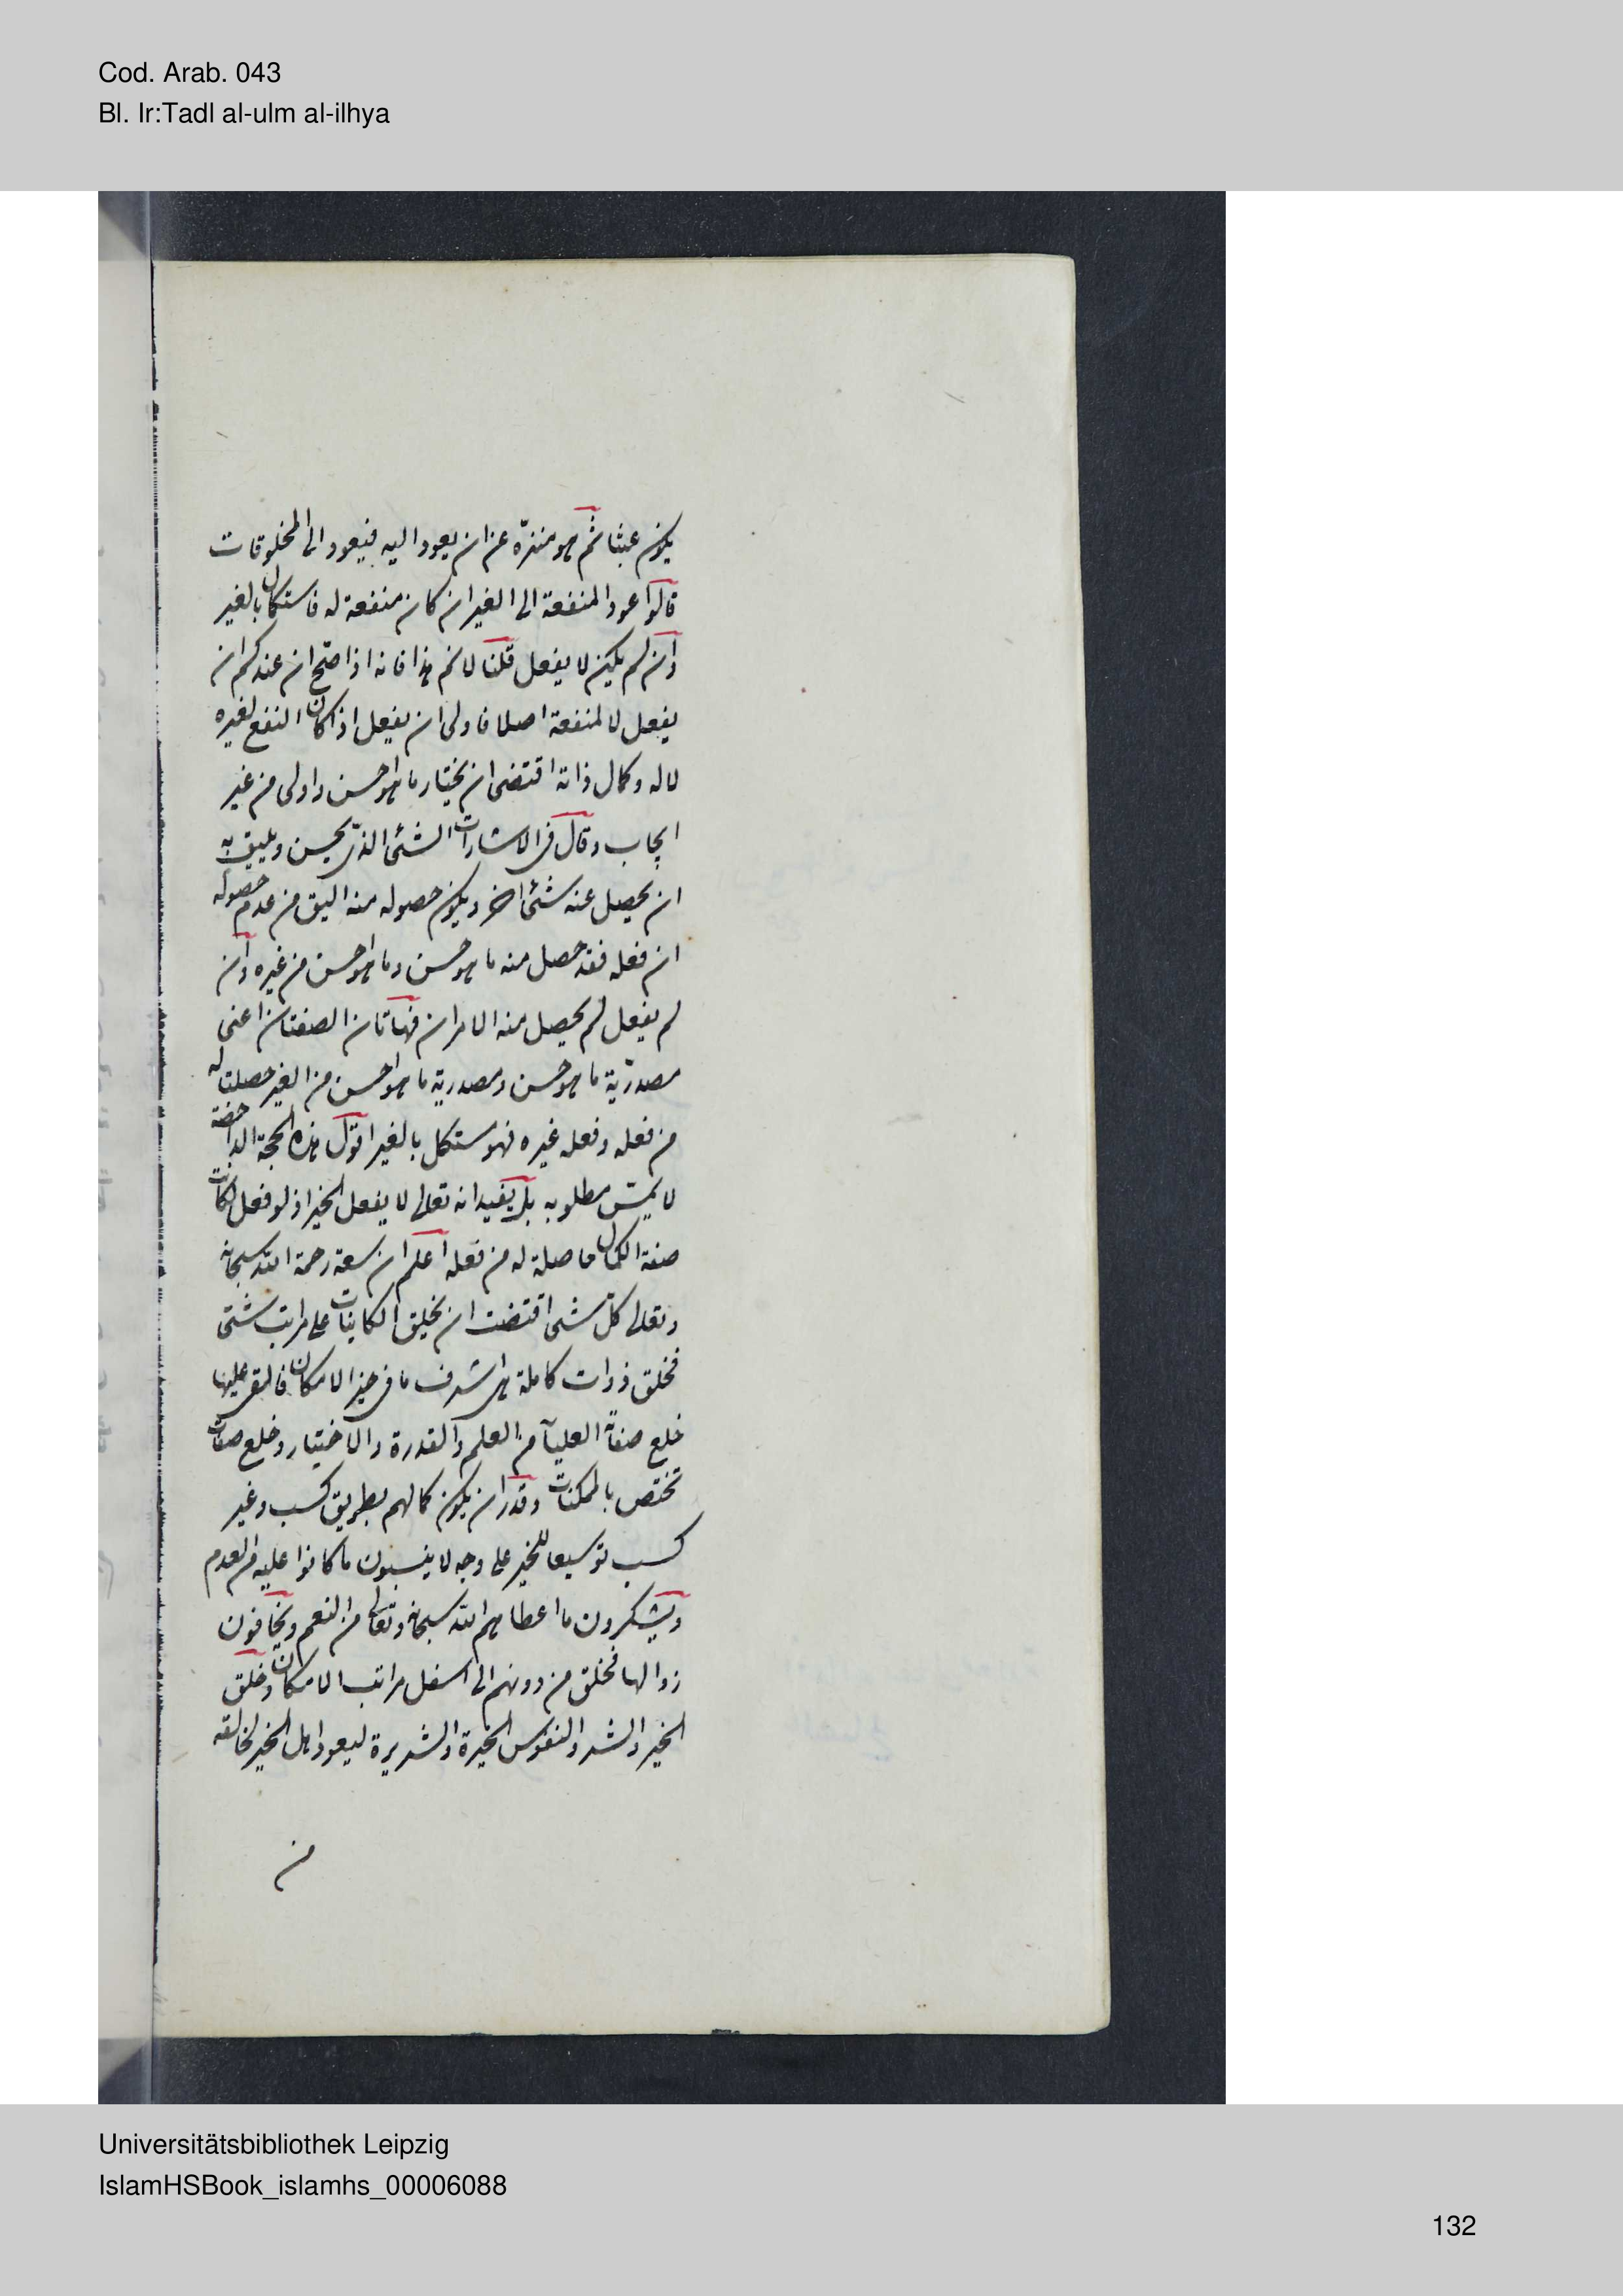 Cod. Arab. 043
Bl. Ir:Tadl al-ulm al-ilhya
يكون عبثا ثم هو منزّه عن ان يعود اليه فيعود الى المخلوقات
قالوا عود المنفعة الى الغير ان كان منفعة له فاستكمال بالغير
وان لم يكن لا يفعل قلنا لا نم هذا فانه اذا صحّ ان عندكم ان
يفعل لا لمنفعة اصلا فاولى ان يفعل اذا كان النفع لغيره
لا له وكمال ذاته اقتضى ان يختار ما هو احسن واولى من غير
ايجاب وقال فى الاشارات الشئ الذى يحسن ويليق به
ان يحصل عنه شئ اخر ويكون حصوله منه اليق من عدم حصوله
ان فعله فقد حصل منه ما هو حسن وما هو احسن من غيره وان
لم يفعل لم يحصل منه الامران فهاتان الصفتان اعنى
مصدريّة ما هو حسن ومصدرية ما هو احسن من الغير حصلتا له
من فعله وفعله غيره فهو مستكمل بالغير اقول هذه الحجة الداحضة
لا يمسّ مطلوبه بل يفيد انه تعالى لا يفعل الخير اذ لو فعل لكانت
صفة الكمال حاصلة له من فعله اعلم ان سعة رحمة الله سبحانه
وتعالى كلّ شى اقتضت ان يخلق الكاينات على مراتب شتى
فخلق ذوات كاملة هى اشرف ما فى حيز الامكان فالقى عليها
خلع صفاته العليآ من العلم والقدرة والاختيار وخلع صفات
تختص بالممكنات وقدر ان يكون كمالهم بطريق كسب وغير
كسب توسيعا للخير على وجه لا ينسون ما كانوا عليه من العدم
ويشكرون ما اعطاهم الله سبحانه وتعالى من النعم ويخافون
زوالها فخلق من دونهم الى اسفل مراتب الامكان وخلق
الخير والشر والنفوس الخيرة والشريرة ليعود اهل الخير لخالقه
من
Universitätsbibliothek Leipzig
IslamHSBook_islamhs_00006088
132